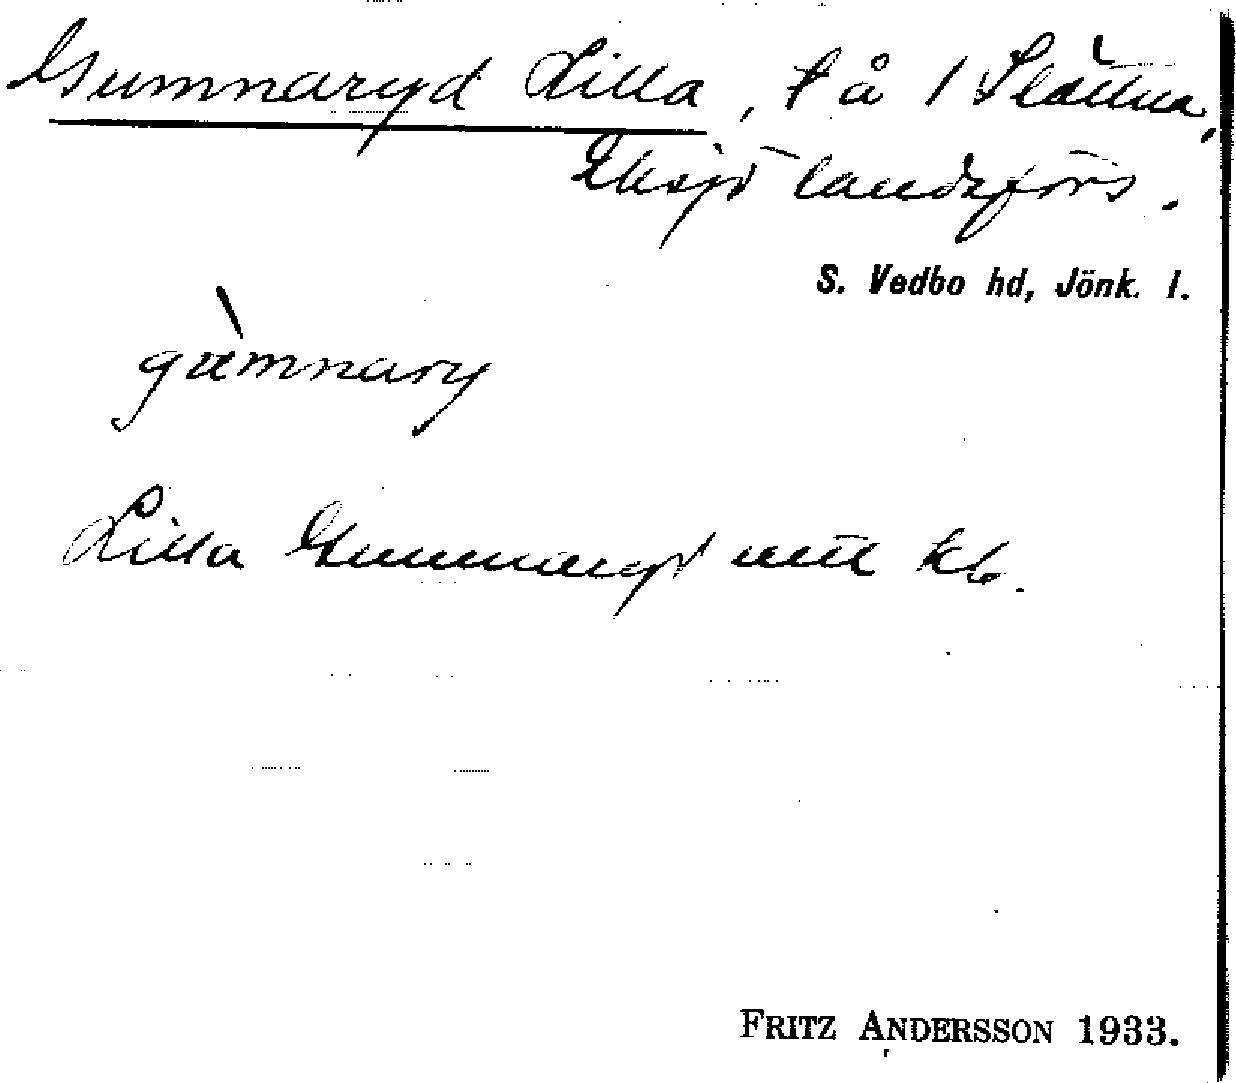 Gummaryd Lilla, t å 1 Slättna,
Eksjö landsförs.
S. Vedbo hd, Jönk. l.
gùmnary
Lilla Gummaryd utt kb.
FRITZ ANDERSSON 1933.